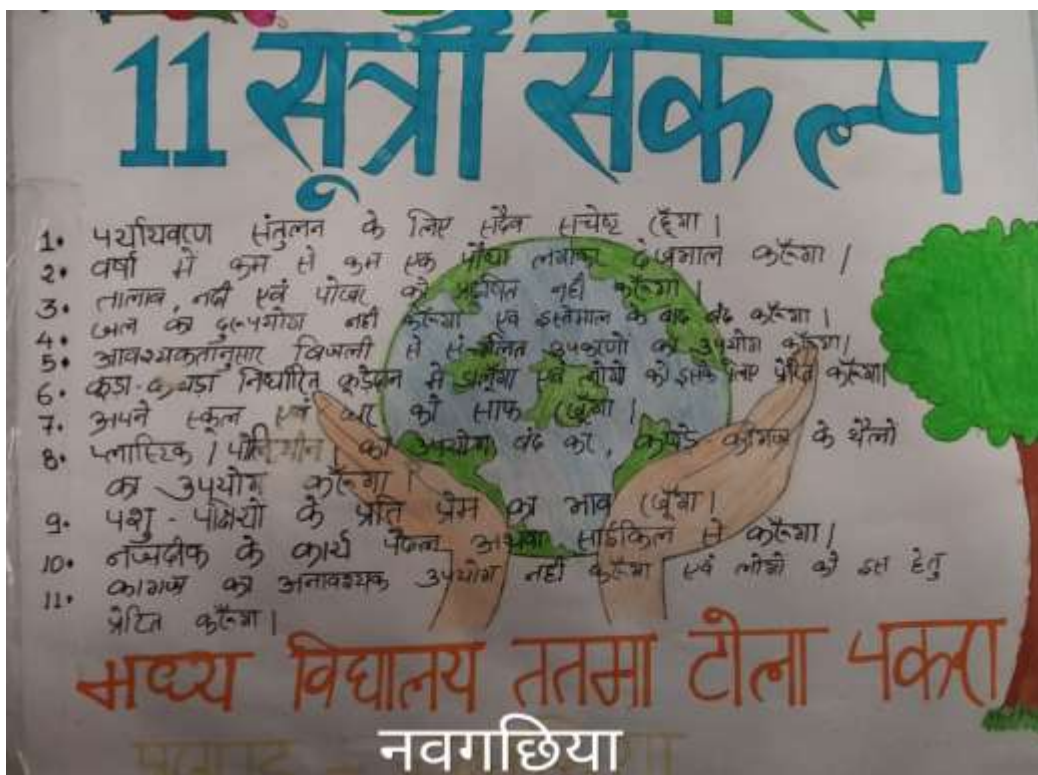 11 सूत्री संकल्प
1. पर्यायवरण संतुलन के लिए सदैव सचेष्ट रहूँगा।
2. वर्षा में कम से कम एक पौधा लगाकर देखभाल करूँगा।
3. तालाव, नदी एवं पोखर को प्रदूषित नही करूँगा।
4. जल का दुरूपयोग नही करूँगा एवं इस्तेमाल के बाद बंद करूँगा।
5. आवश्यकतानुसार बिजली से संचालित उपकरणो का उपयोग करूँगा।
6. कूडा-कचडा निर्धारित कूडेदान में डालूँगा एवं लोगो को इसके लिए प्रेरित करूँगा।
7. अपने स्कूल एवं घर को साफ रखूँगा।
8. प्लास्टिक / पोलिथीन का उपयोग बंद कर, कपड़े-कागज के थैलो
का उपयोग करूँगा।
9. पशु-पक्षियो के प्रति प्रेम का भाव रखूँगा।
10. नजदीक के कार्य पैदल अथवा साईकिल से करूँगा।
11. कागज का अनावश्यक उपयोग नही करूँगा एवं लोगो को इस हेतु
प्रेरित करूँगा।
मध्य विद्यालय ततमा टोला पकरा
नवगछिया